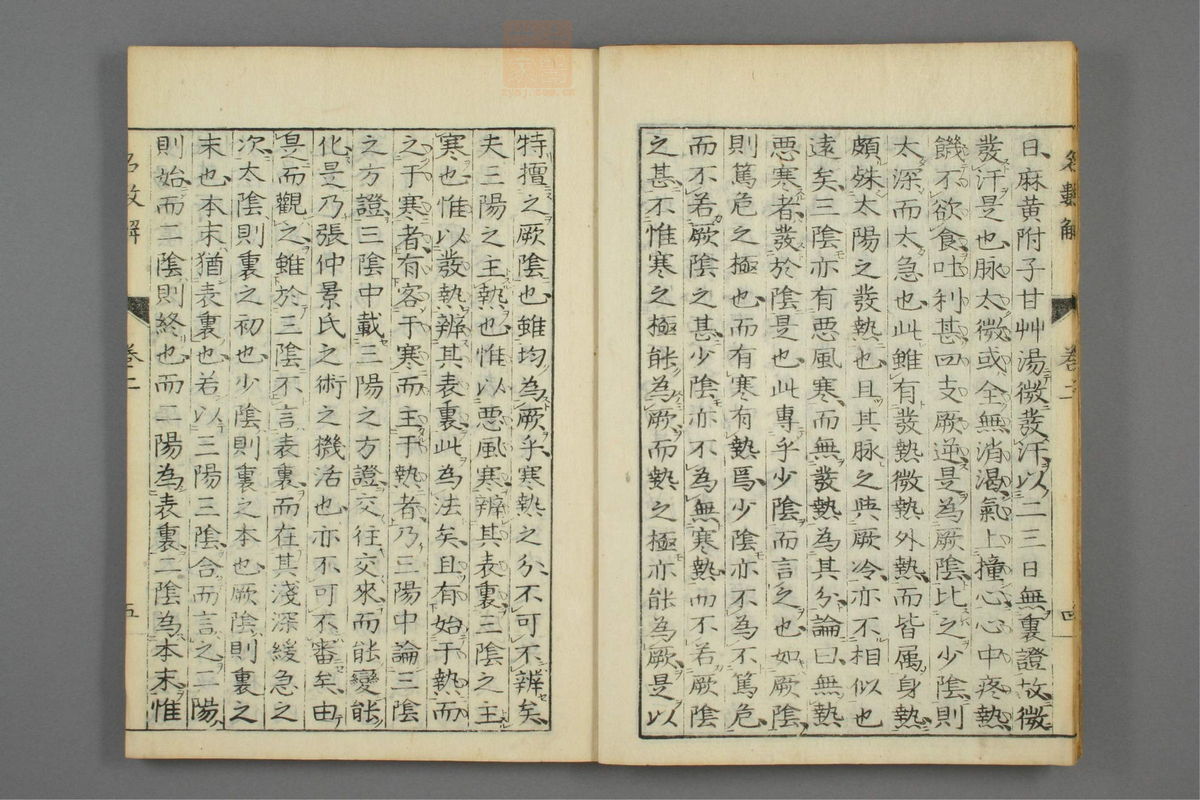 名數解 卷二 四
日麻黄附子甘艸湯微發汗以二三日無裏證故微
發汗是也脉太微或全無消渇氣上撞心心中疼熱
饑不欲食吐利甚四支厥逆是為厥陰比之少陰則
太深而太急也此雖有發熱微熱外熱而皆属身熱
頗殊太陽之發熱也且其脉之與厥冷亦不相似也
遠矣三陰亦有惡風寒而無發熱為其分論曰無熱
惡寒者發於陰是也此專乎少陰而言之也如厥陰
則篤危之極也而有寒有熱焉少陰亦不為不篤危
而不若厥陰之甚少陰亦不為無寒熱而不若厥陰
之甚不惟寒之極能為厥而熱之極亦能為厥是以
特擅之厥陰也雖均為厥乎寒熱之分不可不辨矣
夫三陽之主熱也惟以惡風寒辨其表裏三陰之主
寒也惟以發熱辨其表裏此為法矣且有始于熱而
之于寒者有客于寒而主于熱者乃三陽中論三陰
之方證三陰中載三陽之方證交往交來而能變能
化是乃張仲景氏之術之機活也亦不可不審矣由
是而觀之雖於三陰不言表裏而在其淺深緩急之
次太陰則裏之初也少陰則裏之本也厥陰則裏之
末也本末猶表裏也若以三陽三陰合而言之二陽
則始而二陰則終也而二陽為表裏二陰為本末惟
名數解 卷二 五